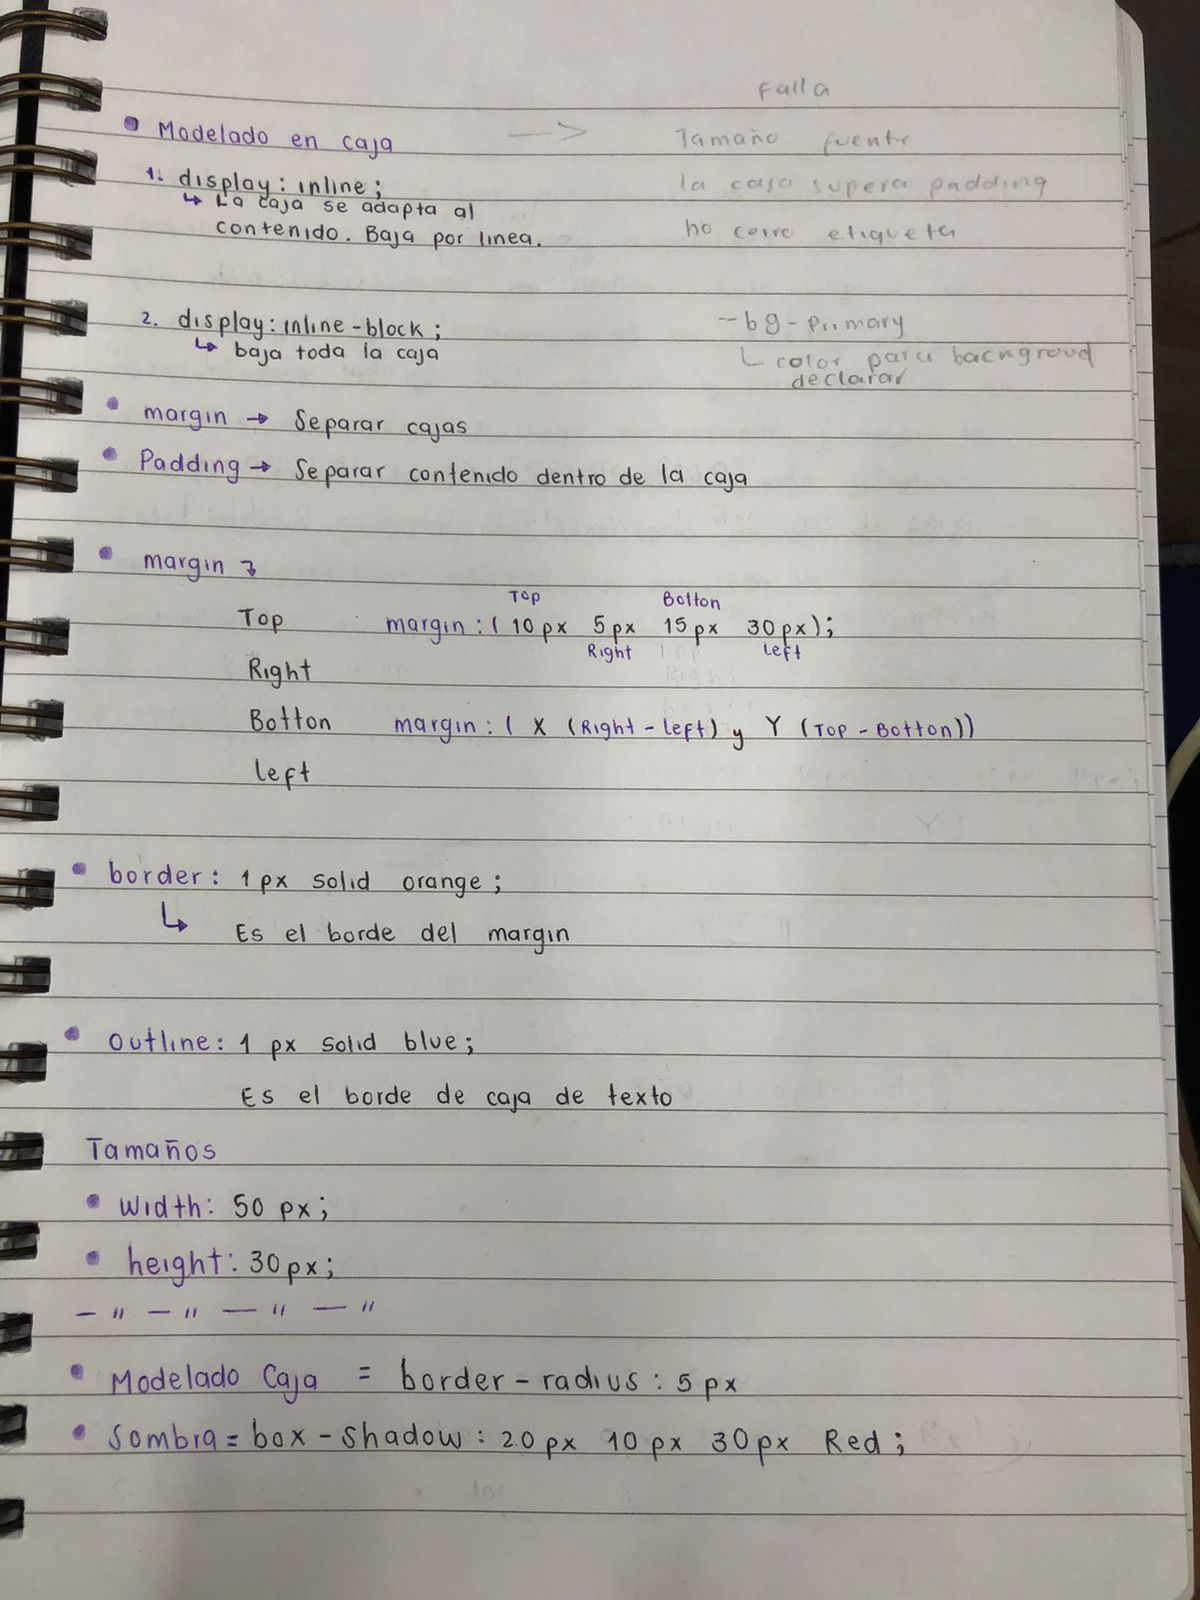 Falla
• Modelado en caja —> Tamaño fuente
1. display: inline; la caja supera padding
↳ La caja se adapta al
contenido. Baja por linea. no cerro etiqueta
2. display: inline-block; --bg-primary
↳ baja toda la caja ↳ color para bacngroud
declarar
• margin → Separar cajas
• Padding → Separar contenido dentro de la caja
• margin ↴
Top Botton
Top margin: ( 10 px 5 px 15 px 30 px);
Right left
Right
Botton margin: ( X (Right - left) y Y (Top - Botton))
left
• border: 1 px solid orange;
↳ Es el borde del margin
• Outline: 1 px solid blue;
Es el borde de caja de texto
Tamaños
• Width: 50 px;
• height: 30 px;
— " — " — " — "
• Modelado Caja = border-radius: 5 px
• Sombra = box-shadow: 20 px 10 px 30 px Red;